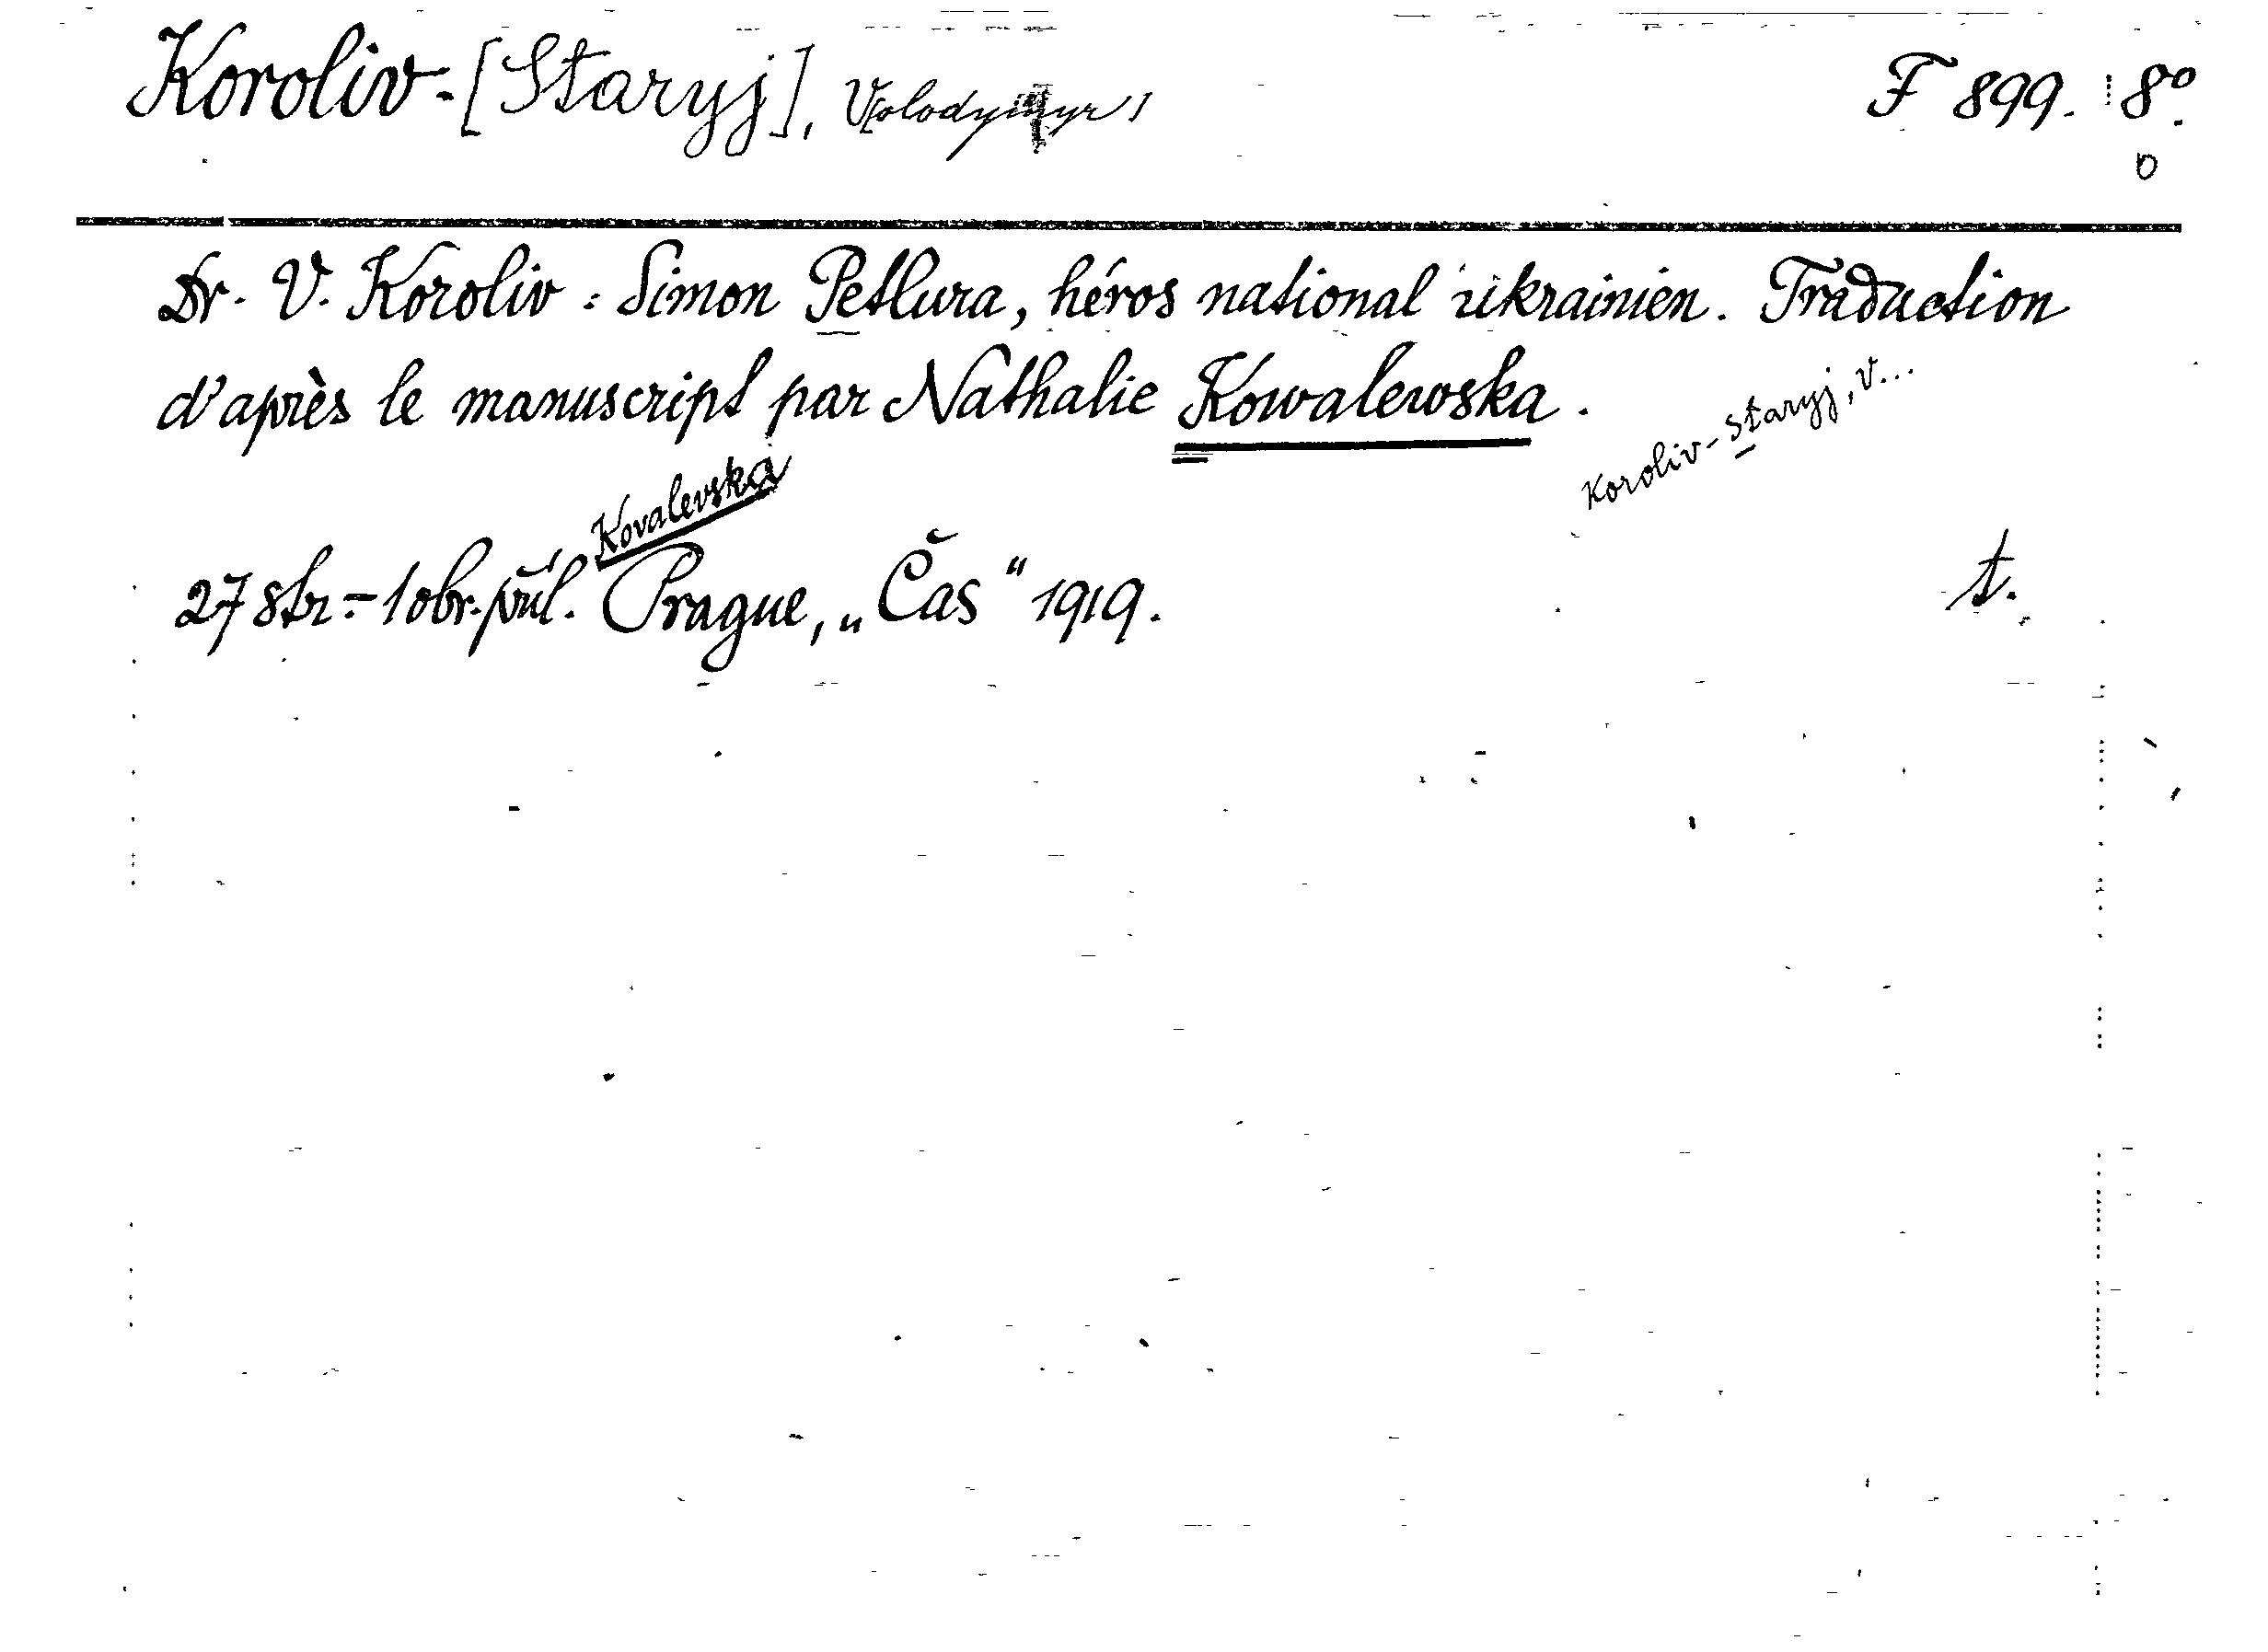 Koroliv-[Staryj], V[olodymyr] F 899. 8°.
Dr. V. Koroliv: Simon Petlura, héros national ukrainien. Traduction
d'après le manuscript par Nathalie Kowalewska.
Koroliv-Staryj, V...
Kovalevska
27 str.-1 obr. příl. Prague, „Čas" 1919. t.